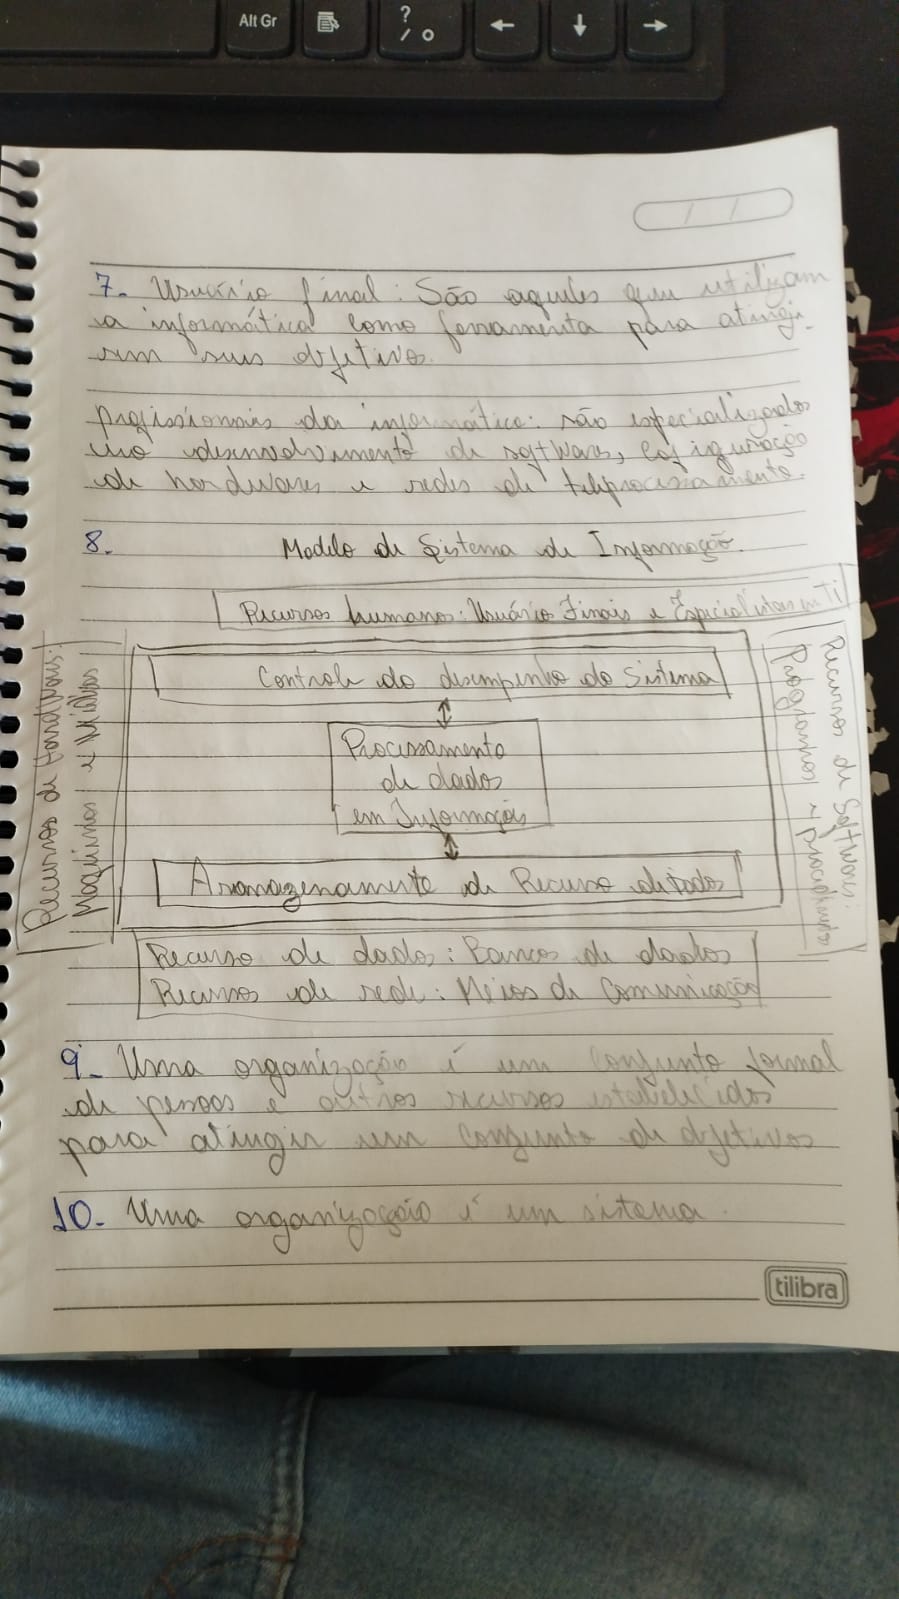 Alt Gr
?
/ °
← ↓ →
/ /
7. Usuário final: São aqueles que utilizam
a informática como ferramenta para atingi-
rem seus objetivos.
profissionais da informática: são especializados
no desenvolvimento de softwares, configuração
de hardwares e redes de teleprocessamento.
8. Modelo de Sistema de Informação.
Recursos humanos: Usuário Finais e Especialistas em TI
Recursos de Hardwares:
Maquinas e Mídias
Controle do desempenho do Sistema
Processamento
de dados
em Informação
Armazenamento de Recurso de dados
Recursos de Softwares:
Programas e procedimento
Recurso de dados: Bancos de dados
Recursos de rede: Méios de Comunicação
9- Uma organização é um conjunto formal
de pessoas e outros recursos estabelecidos
para atingir um conjunto de objetivos
10- Uma organização é um sistema.
tilibra